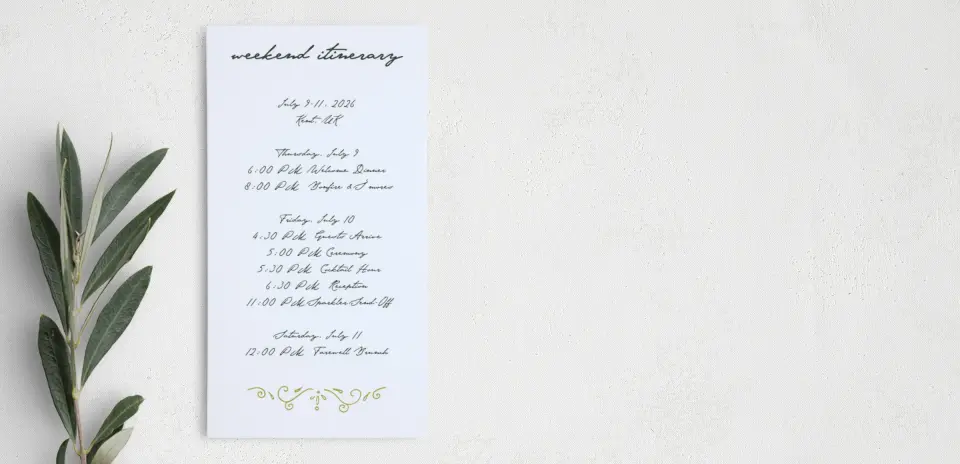 weekend itinerary
July 9-11, 2026
Kent, UK
Thursday, July 9
6:00 PM Welcome Dinner
8:00 PM Bonfire & S'mores
Friday, July 10
4:30 PM Guests Arrive
5:00 PM Ceremony
5:30 PM Cocktail Hour
6:30 PM Reception
11:00 PM Sparkler Send Off
Saturday, July 11
12:00 PM Farewell Brunch